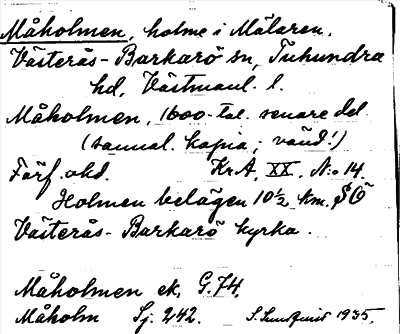 Måholmen, holme i Mälaren,
Västerås-Barkarö sn, Tuhundra
hd, Västmanl. l.
Måholmen, 1600-tal. senare del.
(samml. kopia, vänd!)
Förf. okd. Kr A, XX, N:o 14.
Holmen belägen 10½ km. SÖ
Västerås-Barkarö kyrka.
Måholmen ek, G. 74,
Måholm Sj. 242. S. Sundquist 1935.